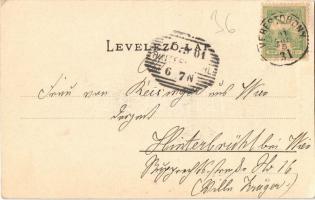 36
LEVELEZŐ-LAP.
6 7N
VERESTORONY
Frau von Reisinger aus Wien
derzeit
Hinterbrühl bei Wien
Rupprechtstraße No 16
(Villa Krüger.)